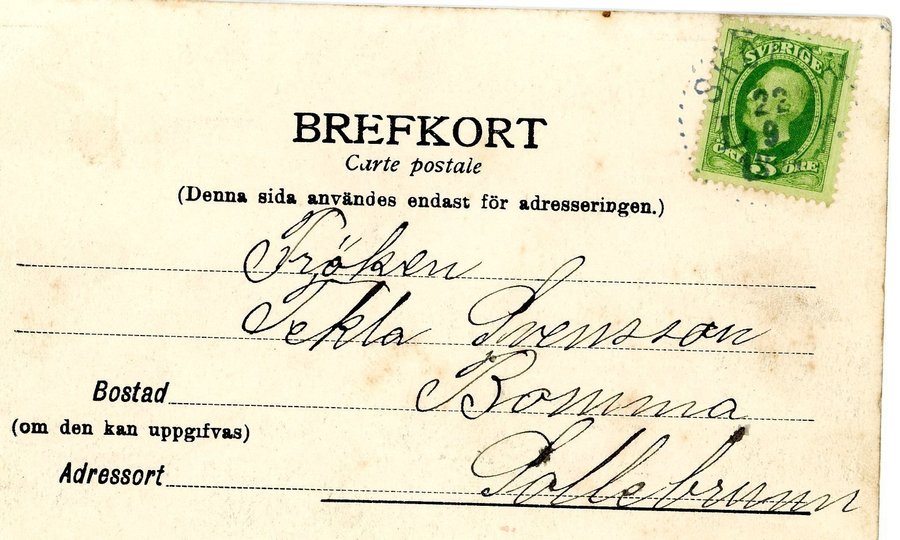 SVERIGE
22
9
5 ÖRE
BREFKORT
Carte postale
(Denna sida användes endast för adresseringen.)
Fröken
Tekla Svensson
Bostad Bomma
(om den kan uppgifvas)
Adressort Sollebrunn